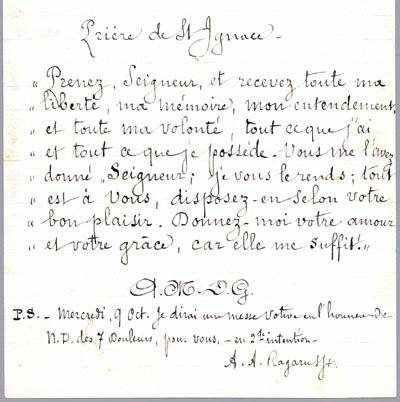 Prière de St Ignace -
" Prenez, Seigneur, et recevez toute ma
" liberté, ma mémoire, mon entendement,
" et toute ma volonté, tout ce que j'ai
" et tout ce que je possède. Vous me l'avez
" donné, Seigneur; je vous le rends; tout
" est à Vous, disposez-en selon votre
" bon plaisir. Donnez-moi votre amour
" et votre grâce, car elle me suffit! "
A.M.D.G.
P.S. - Mercredi, 9 Oct. Je dirai une messe votive en l'honneur de
N.D. des 7 Douleurs, pour vous, - en 2de intention -
A. A.